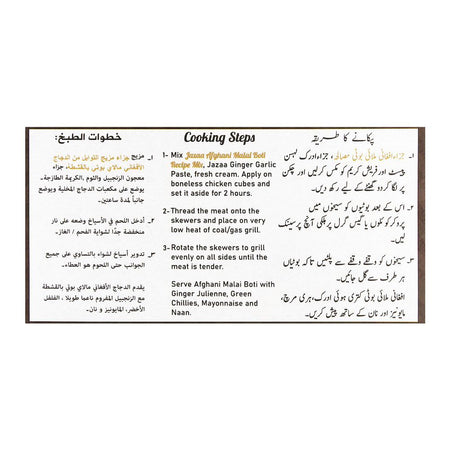 خطوات الطبخ:
١. مزيج جزاء مزيج للتوابل من الدجاج
الأفغاني مالاي بوتي بالقشطة، جزاء
معجون الزنجبيل والثوم ,الكريمة الطازجة.
يوضع على مكعبات الدجاج المخلية ويوضع
جانباً لمدة ساعتين.
٢. أدخل اللحم في الأسياخ وضعه على نار
منخفضة جدًا لشواية الفحم / الغاز.
٣. تدوير أسياخ لشواء بالتساوي على جميع
الجوانب حتى اللحوم هو العطاء.
يقدم الدجاج الأفغاني مالاي بوتي بالقشطة
مع الزنجبيل المفروم ناعما طويلا ، الفلفل
الأخضر، المايونيز و نان.
Cooking Steps
1- Mix Jazaa Afghani Malai Boti
Recipe Mix, Jazaa Ginger Garlic
Paste, fresh cream. Apply on
boneless chicken cubes and set
it aside for 2 hours.
2-Thread the meat onto the
skewers and place on very
low heat of coal/gas grill.
3-Rotate the skewers to grill
evenly on all sides until the
meat is tender.
Serve Afghani Malai Boti with
Ginger Julienne, Green
Chillies, Mayonnaise and
Naan.
پکانے کا طریقہ
۱۔ جزاء افغانی ملائی بوٹی مصالحہ، جزاء ادرک لہسن
پیسٹ اور فریش کریم کو مکس کرلیں اور چکن
پر لگا کر دو گھنٹے کے لیے رکھ دیں۔
۲۔ اس کے بعد بوٹیوں کو سیخوں میں
پرو کر کوئلوں یا گیس گرل پر ہلکی آنچ پر سینک
لیں۔
۳۔ سیخوں کو وقفے وقفے سے پلٹیں تاکہ بوٹیاں
ہر طرف سے گل جائیں۔
افغانی ملائی بوٹی کتری ہوئی ادرک، ہری مرچ،
مایونیز اور نان کے ساتھ پیش کریں۔